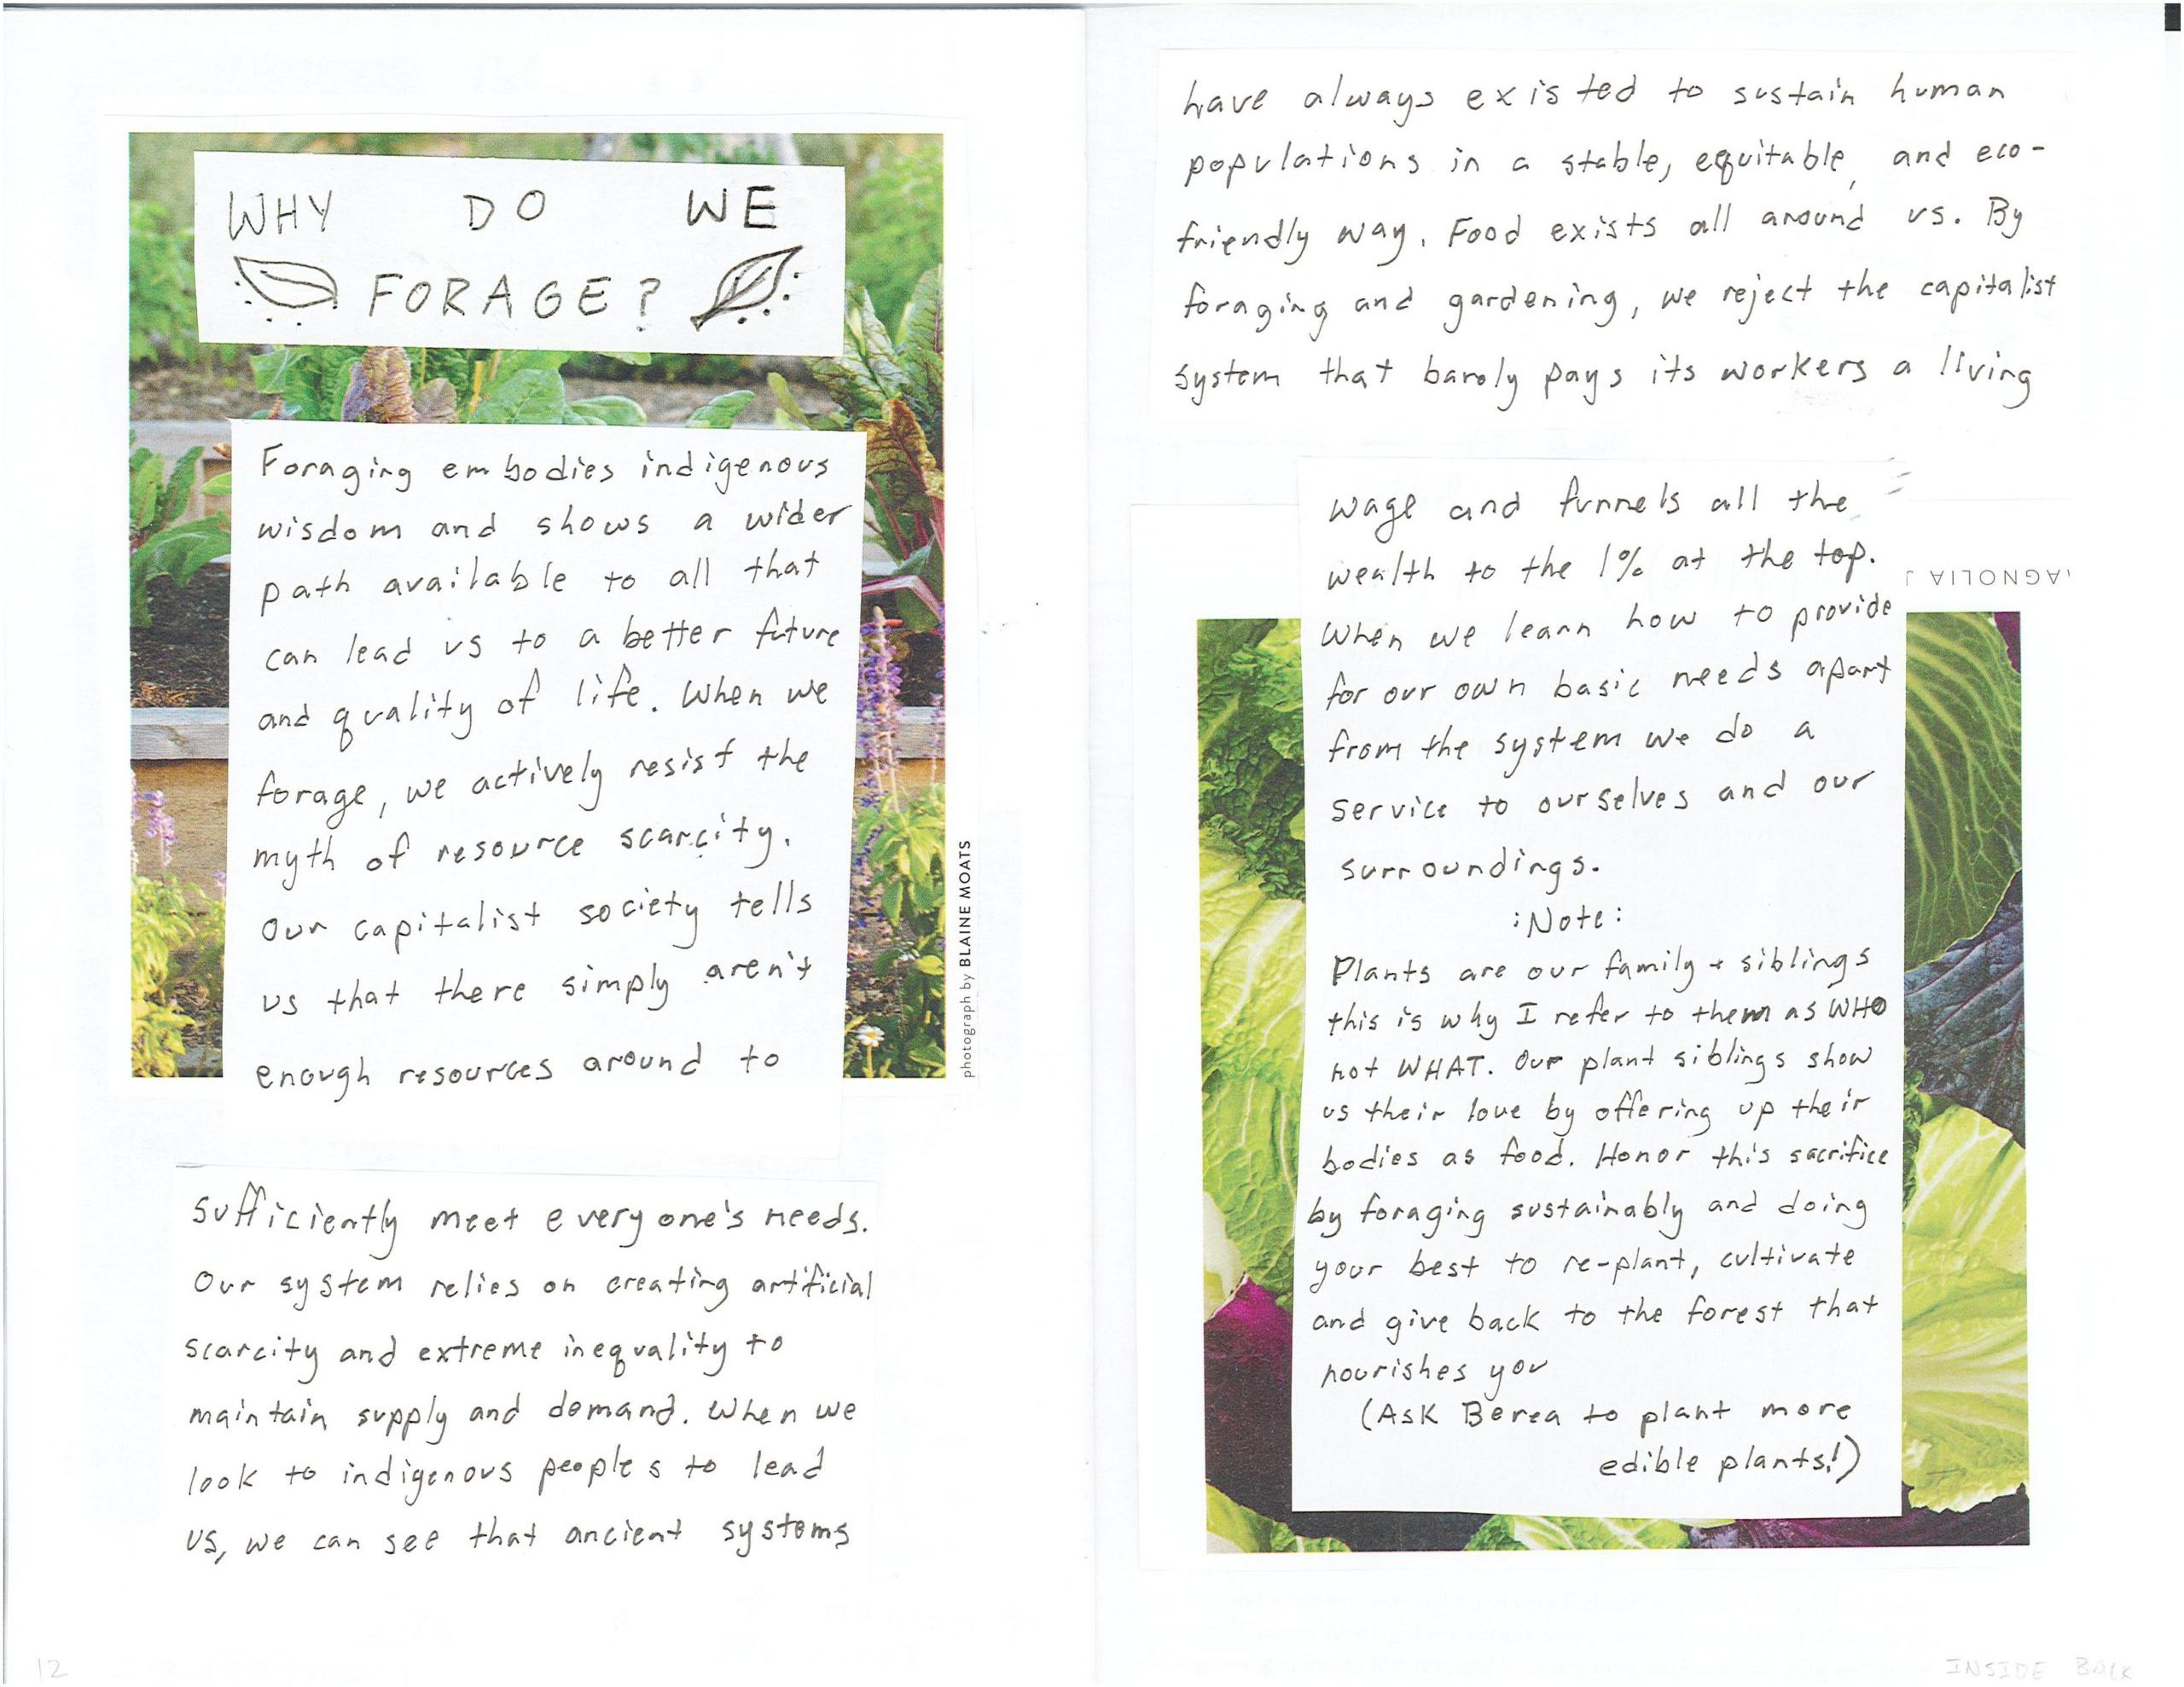 WHY DO WE
FORAGE?
Foraging embodies indigenous
wisdom and shows a wider
path available to all that
can lead us to a better future
and quality of life. When we
forage, we actively resist the
myth of resource scarcity.
Our capitalist society tells
us that there simply aren't
enough resources around to
sufficiently meet everyone's needs.
Our system relies on creating artificial
scarcity and extreme inequality to
maintain supply and demand. When we
look to indigenous peoples to lead
us, we can see that ancient systems
photograph by BLAINE MOATS
12
have always existed to sustain human
populations in a stable, equitable, and eco-
friendly way. Food exists all around us. By
foraging and gardening, we reject the capitalist
system that barely pays its workers a living
wage and funnels all the
wealth to the 1% at the top.
When we learn how to provide
for our own basic needs apart
from the system we do a
service to ourselves and our
surroundings.
:Note:
Plants are our family + siblings
this is why I refer to them as WHO
not WHAT. Our plant siblings show
us their love by offering up their
bodies as food. Honor this sacrifice
by foraging sustainably and doing
your best to re-plant, cultivate
and give back to the forest that
nourishes you
(Ask Berea to plant more
edible plants!)
AGNOLIA J
INSIDE BACK